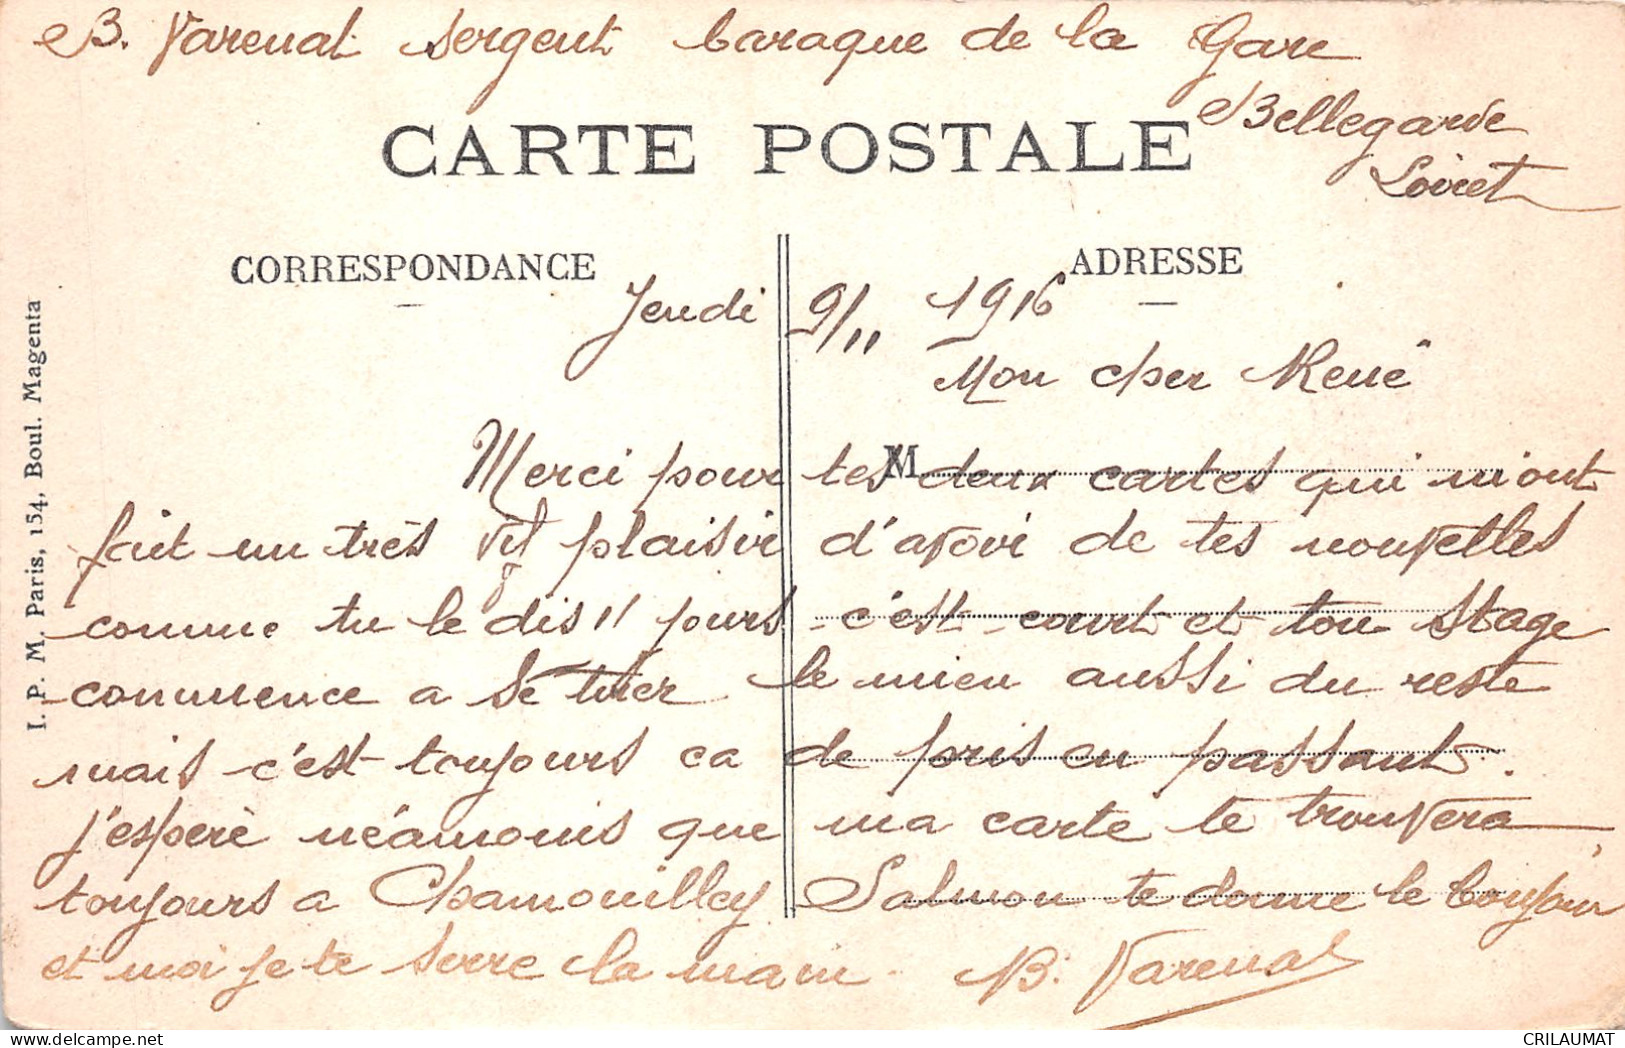 B. Varenat sergent baraque de la Gare
Bellegarde
Loiret
CARTE POSTALE
CORRESPONDANCE
ADRESSE
I. P. M. Paris, 154, Boul. Magenta
Jeudi 9/11 1916
Mon cher René
M
Merci pour tes deux cartes qui m'ont
fait un très vif plaisir d'avoir de tes nouvelles
comme tu le dis 11 jours c'est court et ton stage
commence a se tirer le mien aussi du reste
mais c'est toujours ca de pris en passant.
j'espere néamonis que ma carte te trouvera
toujours a Chamouilley Salmon te donne le bonjour
et moi je te serre la main. B. Varenat
CRILAUMAT